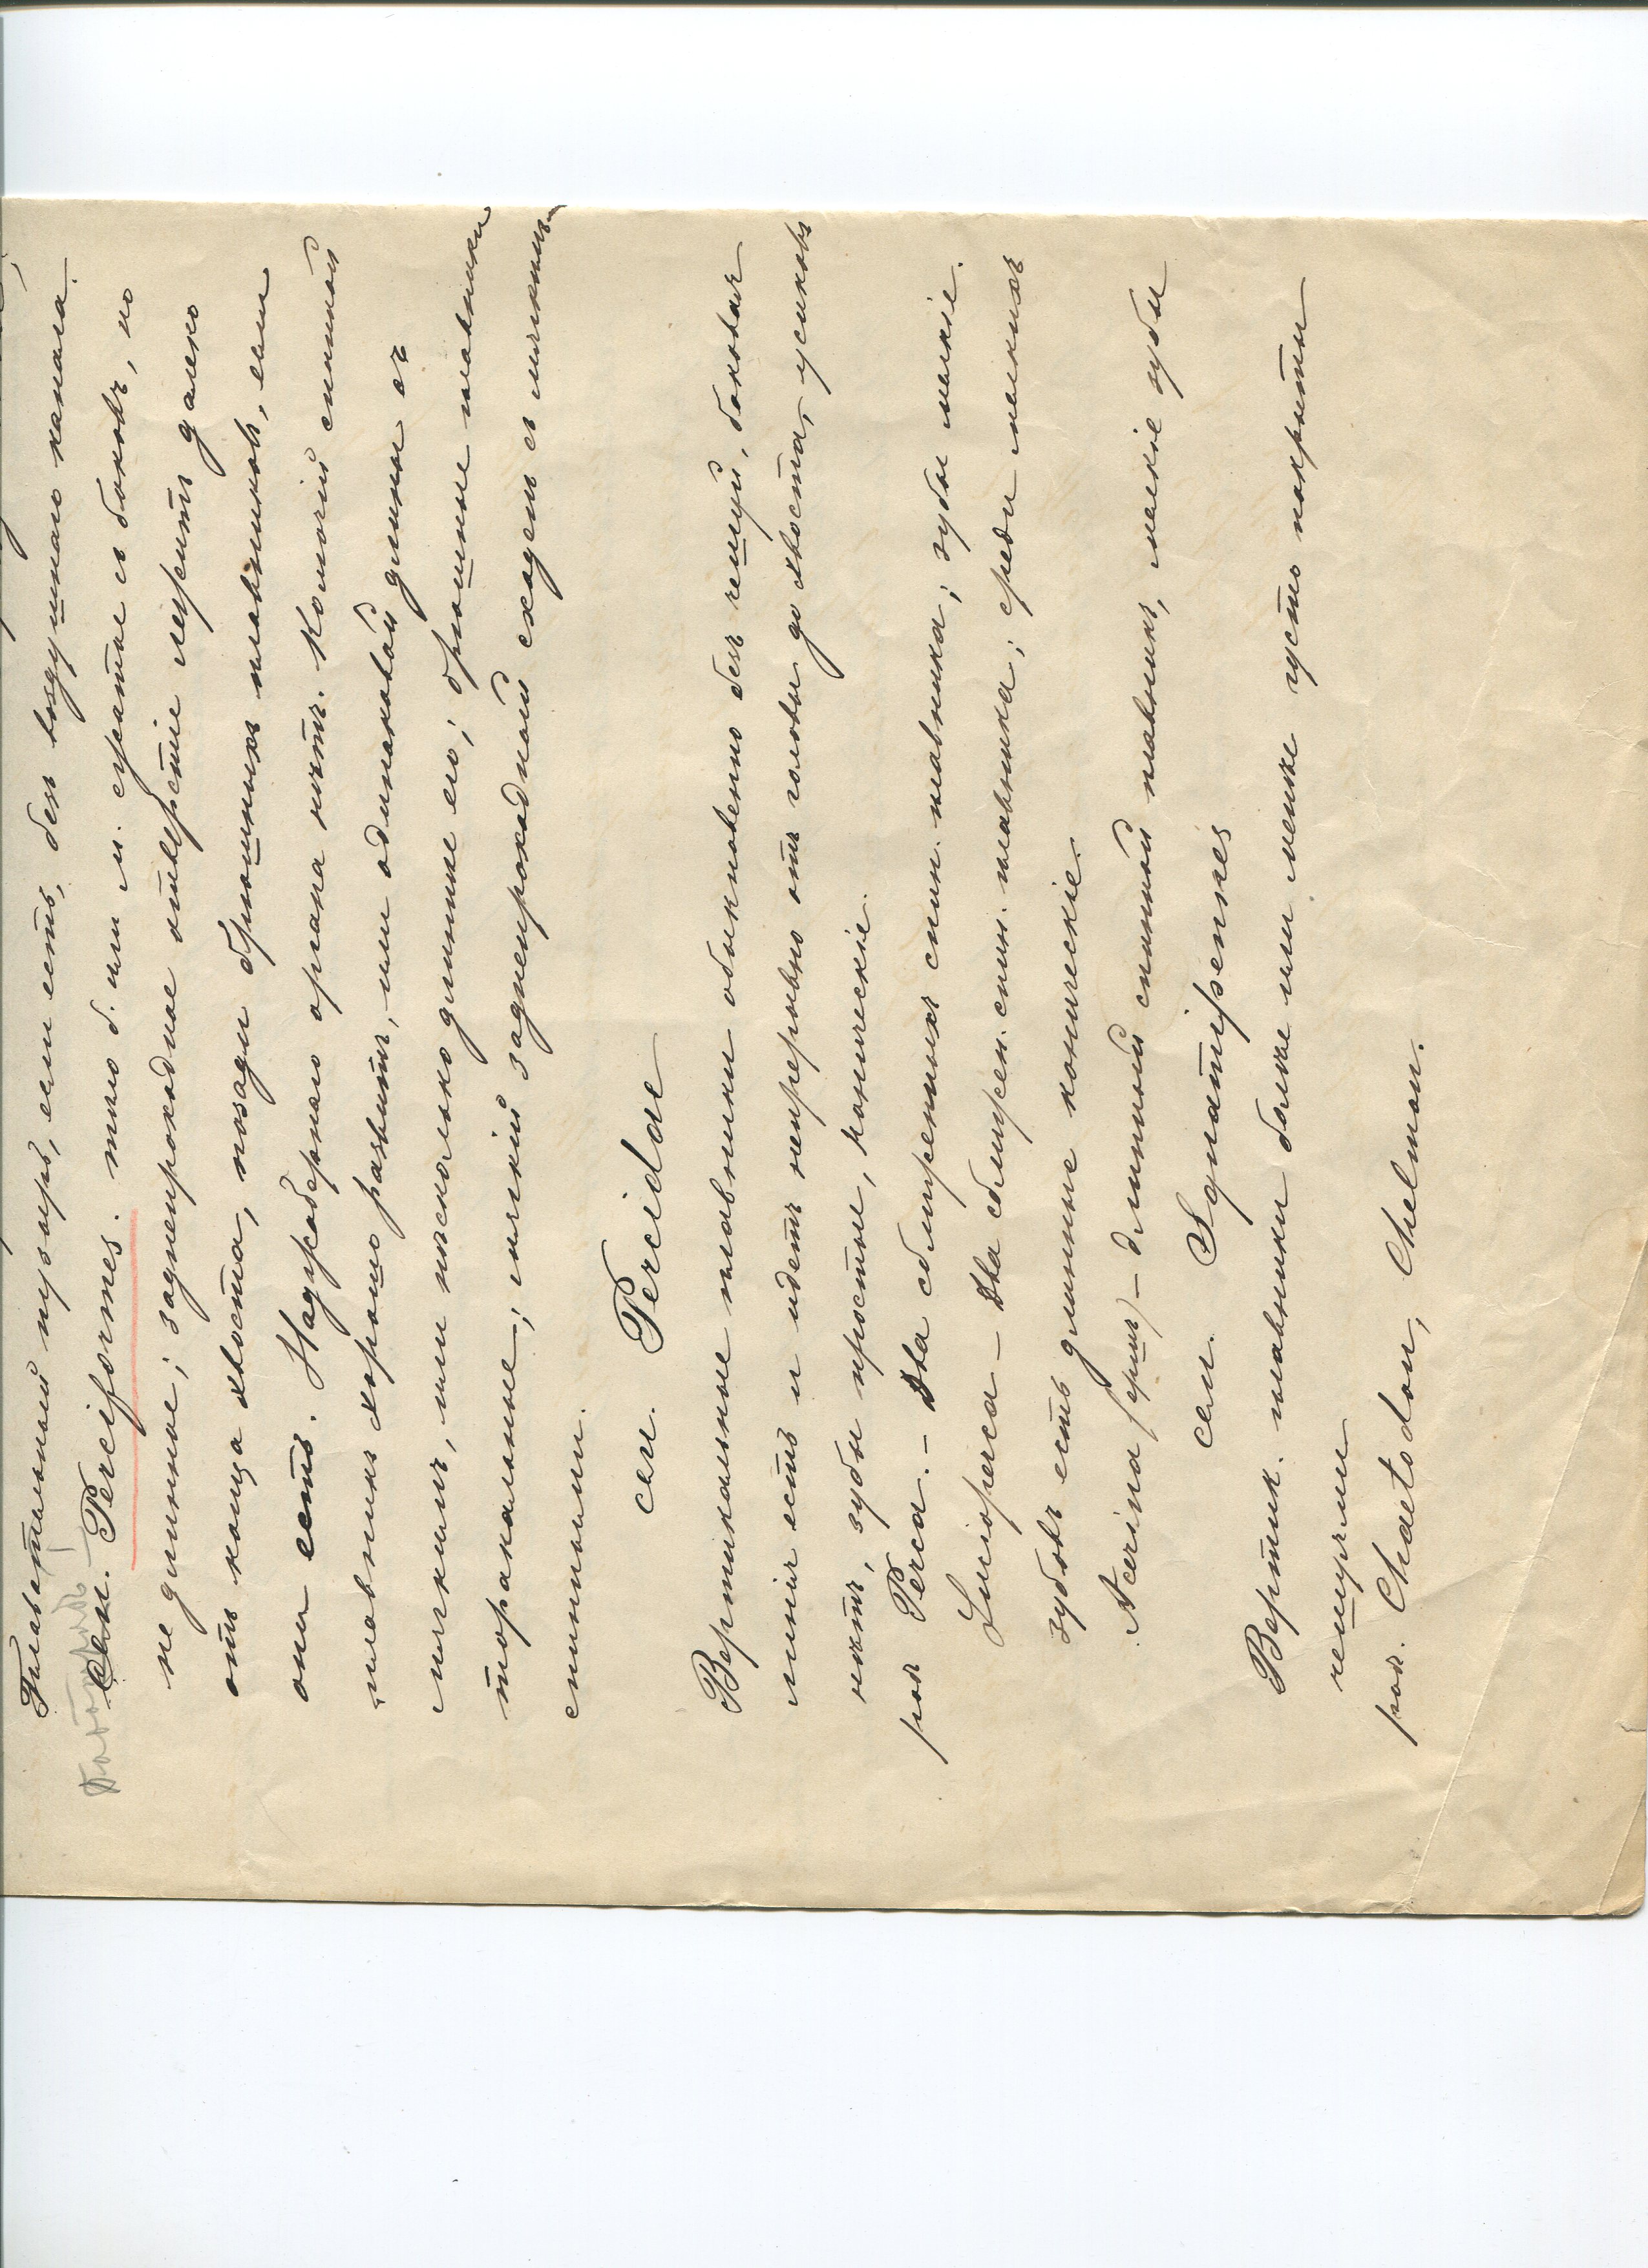 Плавательный пузырь, если есть, безъ воздушнаго канала.
Сем. Perciformes. тѣло б. или м. сжатое съ боковъ, но
не длинное; заднепроходное отверстіе лежитъ далеко
отъ конца хвоста, позади брюшныхъ плавниковъ, если
они есть. Наджабернаго органа нѣтъ. Колючій спинной
плавникъ хорошо развитъ, или одинаковой длины съ
мягкимъ, или нѣсколько длиннѣе его; брюшные плавники
торакальные; мягкій заднепроходный сходенъ съ мягкимъ
спиннымъ.
сем. Percidae
Вертикальные плавники обыкновенно безъ чешуй, боковая
линія есть и идетъ непрерывно отъ головы до хвоста, усиковъ
нѣтъ, зубы простые, коническіе.
род Perca. – Два сближенныхъ спин. плавника; зубы мелкіе.
Lucioperca – Два сближен. спин. плавника; среди мелкихъ
зубовъ есть длинные коническіе.
Acerina (ершъ) – длинный спинной плавникъ, мелкіе зубы
сем. Squamipennes
Вертик. плавники болѣе или менѣе густо покрыты
чешуями
род. Chaetodon, Chelmon.